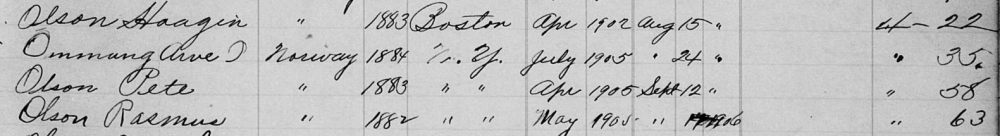 Olson Haagin " 1883 Boston Apr 1902 Aug 15 " 4 - 22
Ommang Arve J Norway 1884 N. Y. July 1905 " 24 " " 35
Olson Pete " 1883 " " Apr 1905 Sept 12 " " 58
Olson Rasmus " 1882 " " May 1905 " 1906 " 63